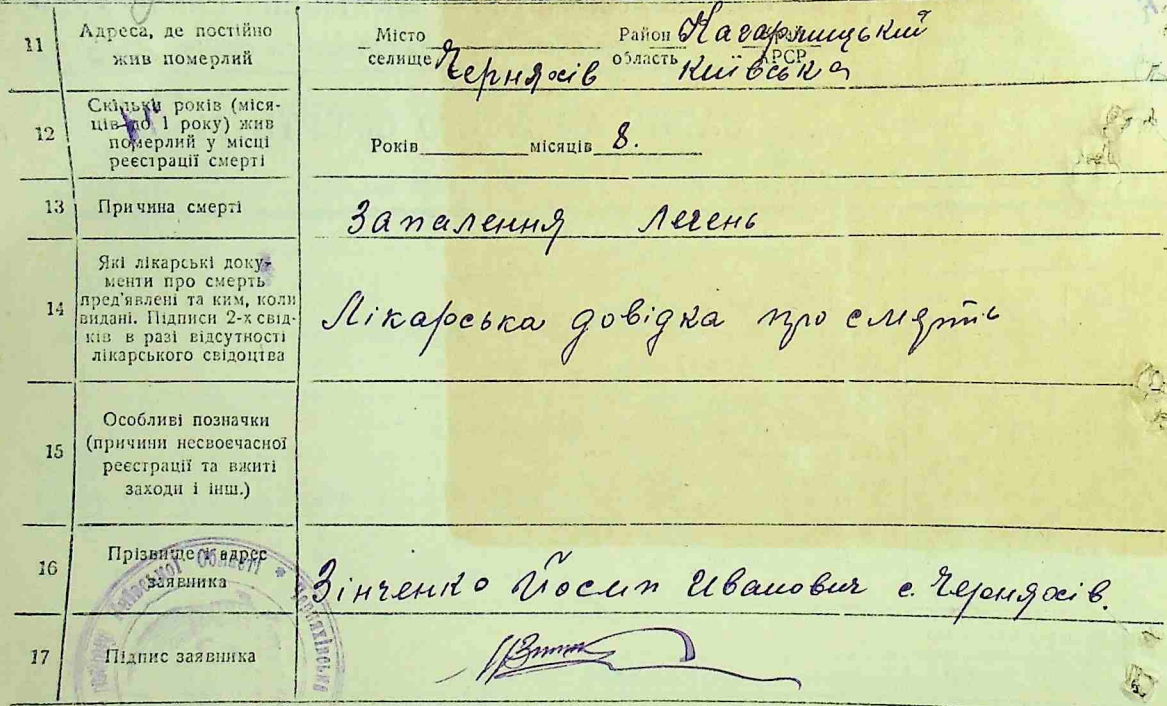 11 Адреса, де постійно жив померлий
Місто Район Кагарлицький
селище Черняхів область АРСР київська
12 Скільки років (міся-
ців до 1 року) жив
померлий у місці
реєстрації смерті
Років місяців 8.
13 Причина смерті
Запалення легень
14 Які лікарські доку-
менти про смерть
пред'явлені та ким, коли
видані. Підписи 2-х свід-
ків в разі відсутності
лікарського свідоцтва
Лікарська довідка про смерть
15 Особливі позначки
(причини несвоєчасної
реєстрації та вжиті
заходи і інш.)
16 Прізвище і адрес
заявника
Зінченко Йосип Иванович с. Черняхів.
17 Підпис заявника
Київської Області * Черняхівська